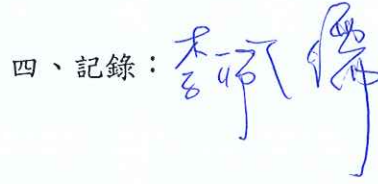 四、記錄：李